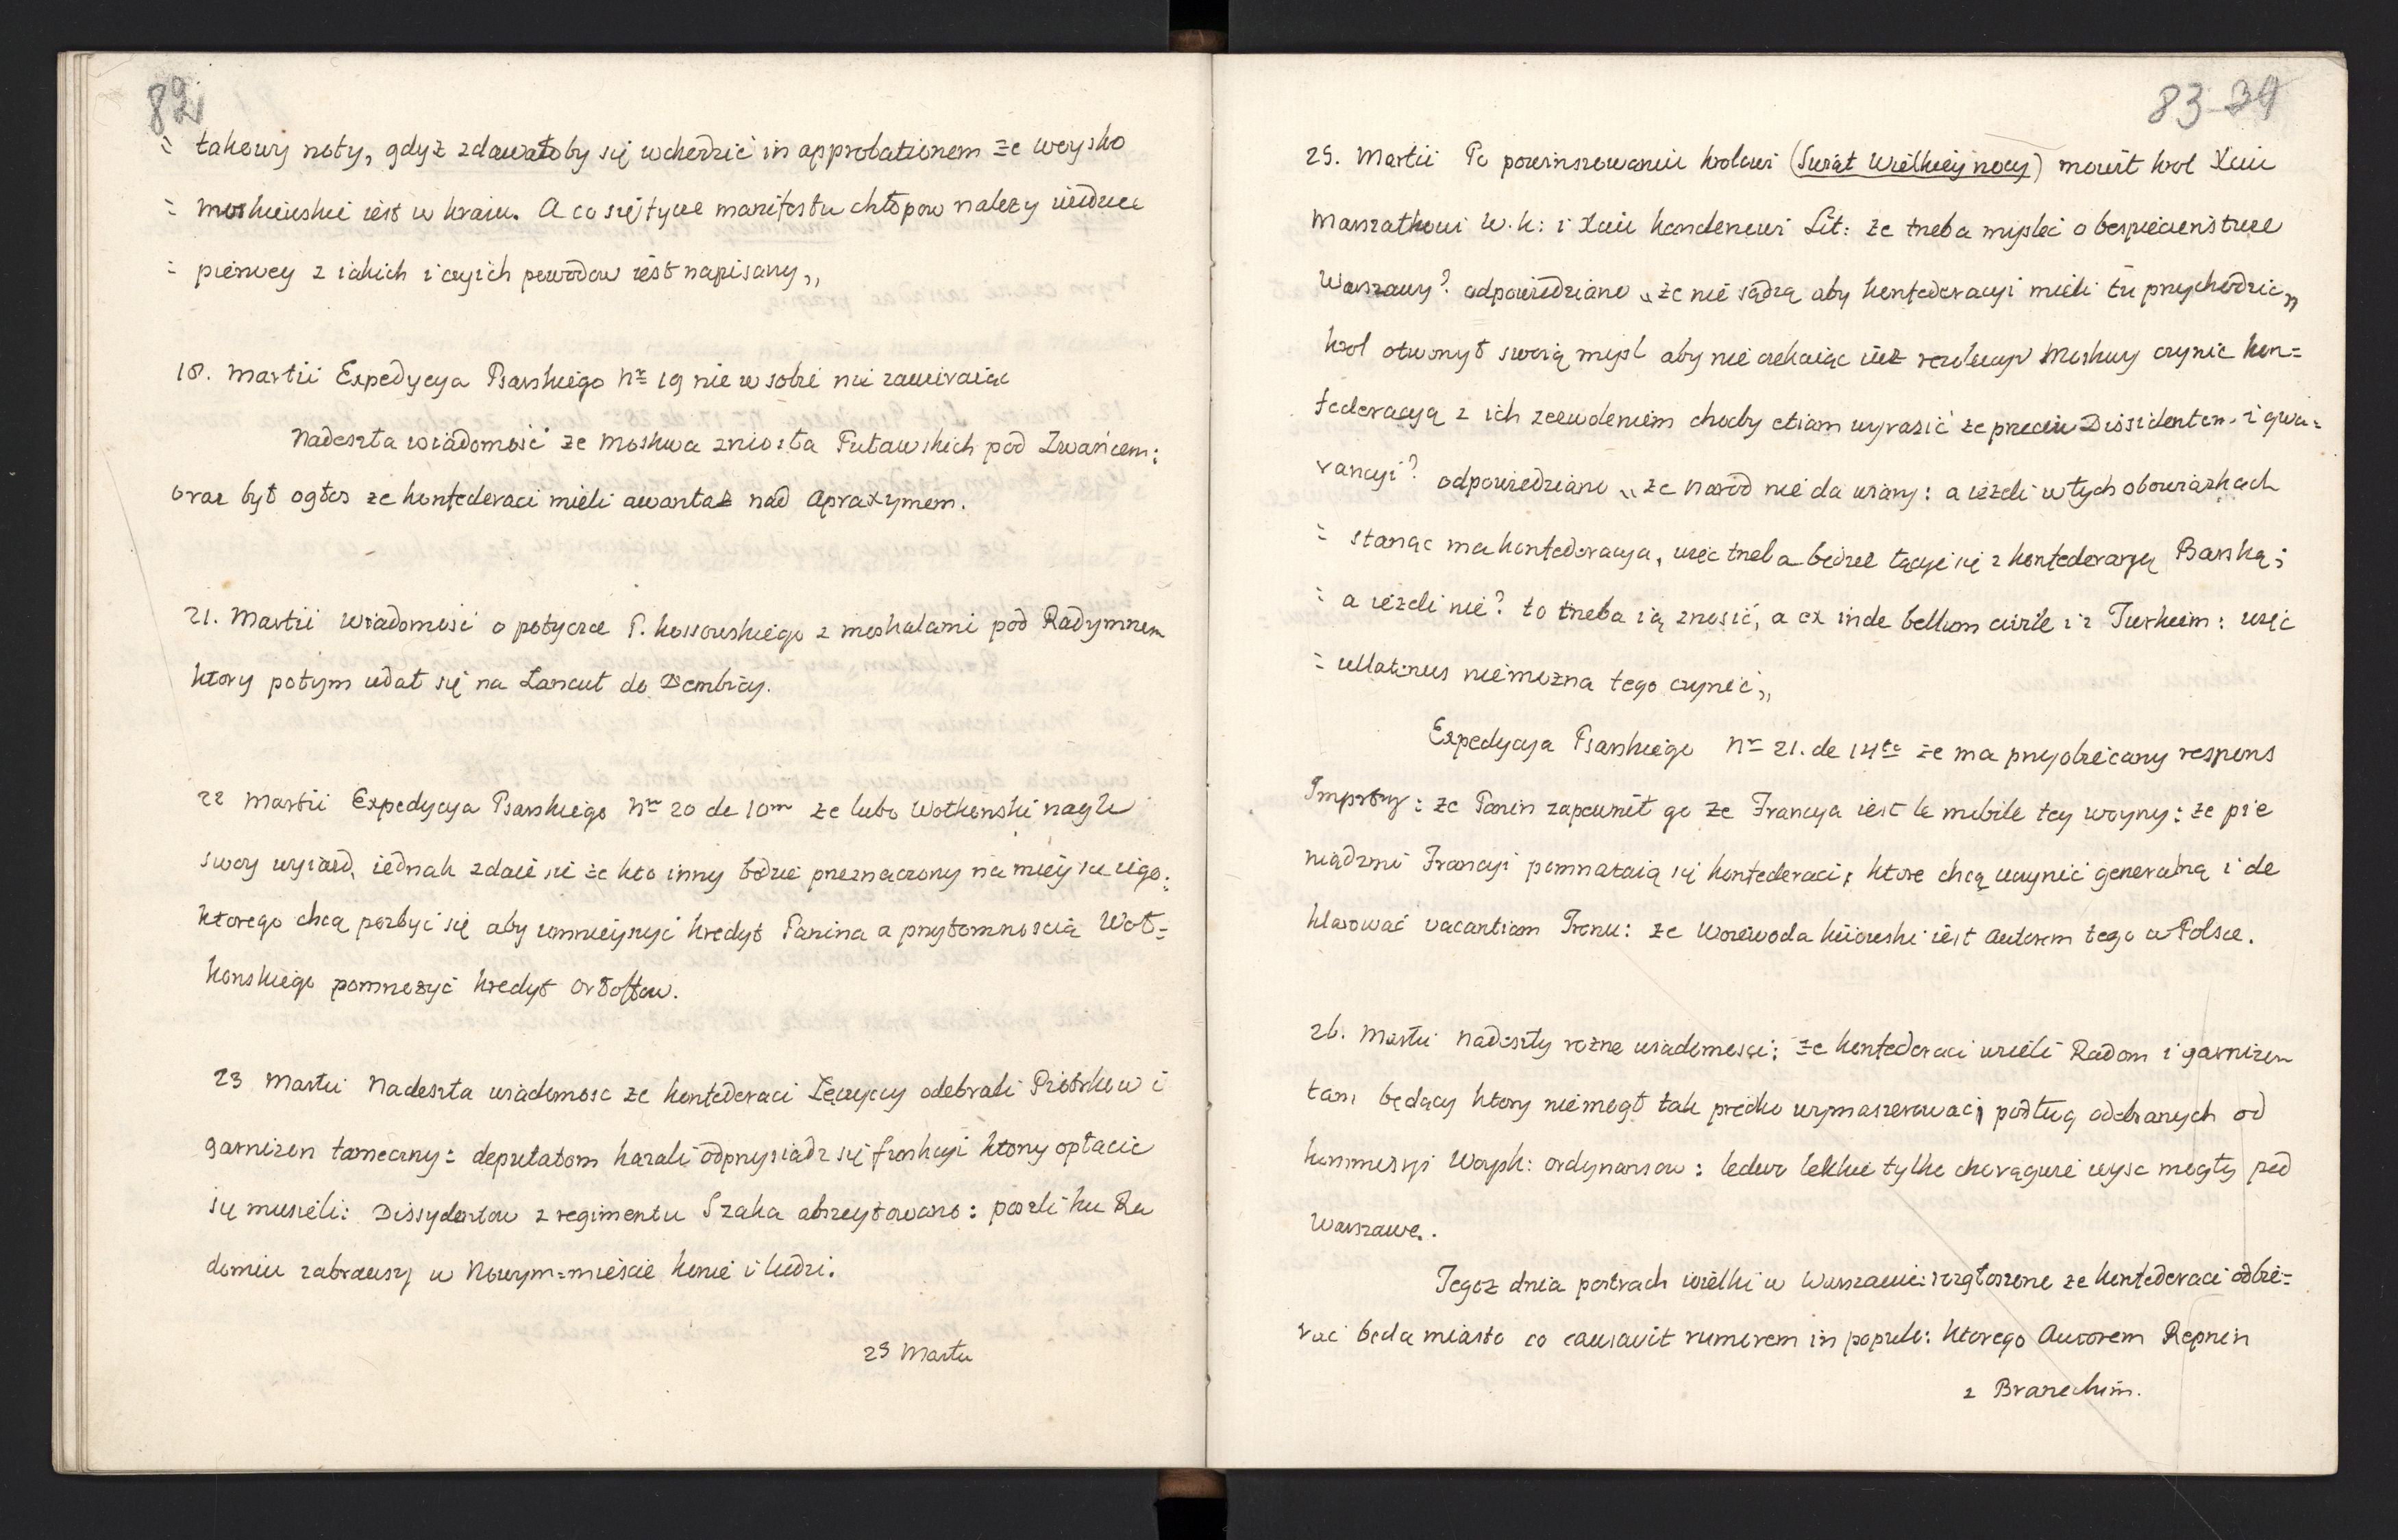 82
= takowy noty, gdyż zdawałoby się wchodzić in approbationem że woysko
= moskiewskie iest w kraiu. A co się tycze manifestu chłopow nalezy wiedziec
= pierwey z iakich i czyich powodow iest napisany„
18. Martii Expedycya Psarskiego Nr 19 nic w sobie nie zawieraiąc
Nadeszła wiadomość że Moskwa zniosła Puławskich pod Zwańcem:
oraz był ogłos że konfederaci mieli awantaż nad Apraxynem.
21. Martii wiadomość o potyczce P. Kossowskiego z moskalami pod Radymnem
ktory potym udał się na Lancut do Dembicy.
22 Martii Expedycya Psarskiego Nr 20 de 10ma że lubo Wołkonski nagli
swoy wyiazd, iednak zdaie się że kto inny będzie przeznaczony na mieysce iego:
ktorego chcą pozbyć się aby umnieyszyć kredyt Panina a przytomnoscią Woł=
konskiego pomnożyć kredyt Orłoffow.
23 Martii Nadeszła wiadomosc że konfederaci Łęczyccy odebrali Piotrkow i
garnizon tameczny: deputatom kazali odprzysiądz się funkcyi ktorzy opłacic
się musieli: Dissydentow z regimentu Szaka abszeytowano: poszli ku Ra
domiu zabrawszy w Nowym=mieście konie i ludzi.
25 Martii
83 39
25. Martii Po powinszowaniu krolowi (Swiąt Wielkiey nocy) mowił krol Xciu
Marszałkowi W. K: i Xciu kanclerzowi Lit: że trzeba mysleć o bespieczeństwie
Warszawy? odpowiedziano „że nie sądzą aby konfederacyi mieli tu przychodzic„
krol otworzył swoią mysl aby nie czekaiąc iuż rezolucyi Moskwy czynic kon=
federacyą z ich zezwoleniem choćby etiam wyrazić że przeciw Dissidentom i gwa=
rancyi? odpowiedziano „że narod nie da wiary: a ieżeli w tych obowiązkach
= stanąc ma konfederacya, więc trzeba będzie łączyć się z konfederacyą Barską;
= a ieżeli nie? to trzeba ią znosić, a ex inde bellum civile i z Turkiem: więc
= ullatenus nie można tego czynić„
Expedycya Psarskiego Nr 21. de 14ta że ma przyobiecany respons
Imprtwy: że Panin zapewnił go że Francya iest le mobile tey woyny: że pie
niądzmi Francyi pomnażaią się konfederacie, ktore chcą uczynić generalną i de
klarować vacantiam Tronu: że Woiewoda kiiowski iest autorem tego w Polsce.
26. Martii Nadeszły rożne wiadomości: że konfederaci wzieli Radom i garnizon
tam będący ktory nie mogł tak prędko wymaszerować, podług odebranych od
kommissyi Woysk: ordynansow: ledwo lekkie tylko chorągwie wyisc mogły pod
Warszawę.
Tegoż dnia postrach wielki w Warszawie: rozgłoszono że konfederaci odbie=
rać będa miasto co causavit rumorem in populo: ktorego Autorem Repnin
z Branickim.